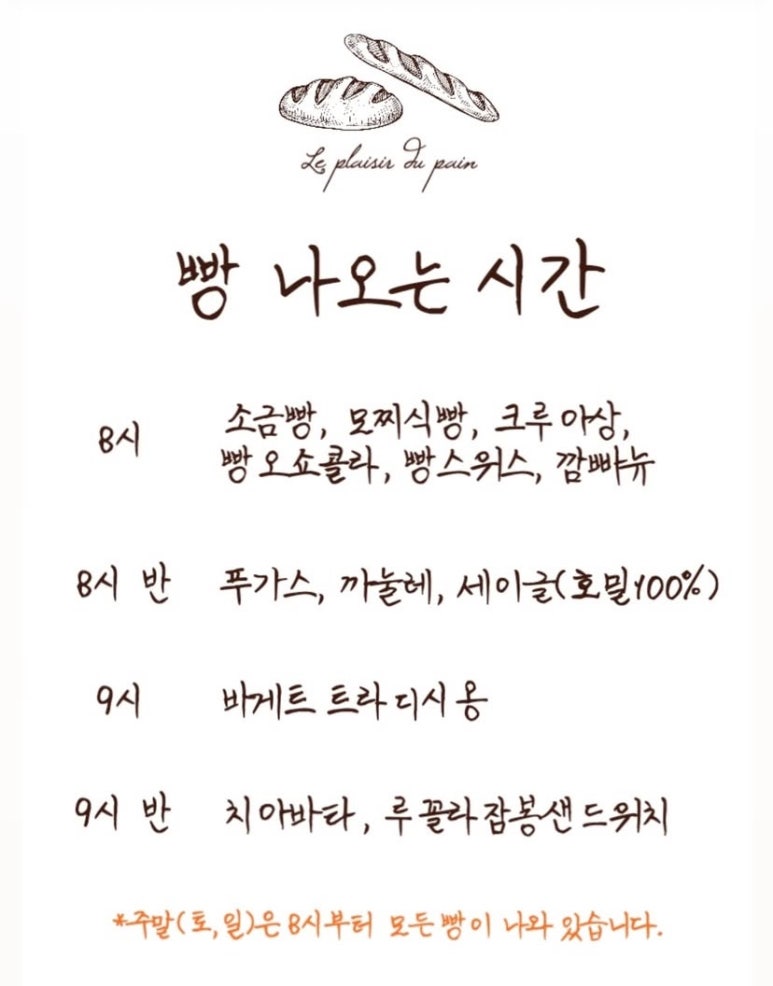 Le plaisir du pain
빵 나오는 시간
8시 소금빵, 모찌식빵, 크루아상,
빵오쇼콜라, 빵스위스, 깜빠뉴
8시 반 푸가스, 까눌레, 세이글(호밀100%)
9시 바게트 트라디시옹
9시 반 치아바타, 루꼴라잠봉샌드위치
*주말(토,일)은 8시부터 모든빵이 나와있습니다.